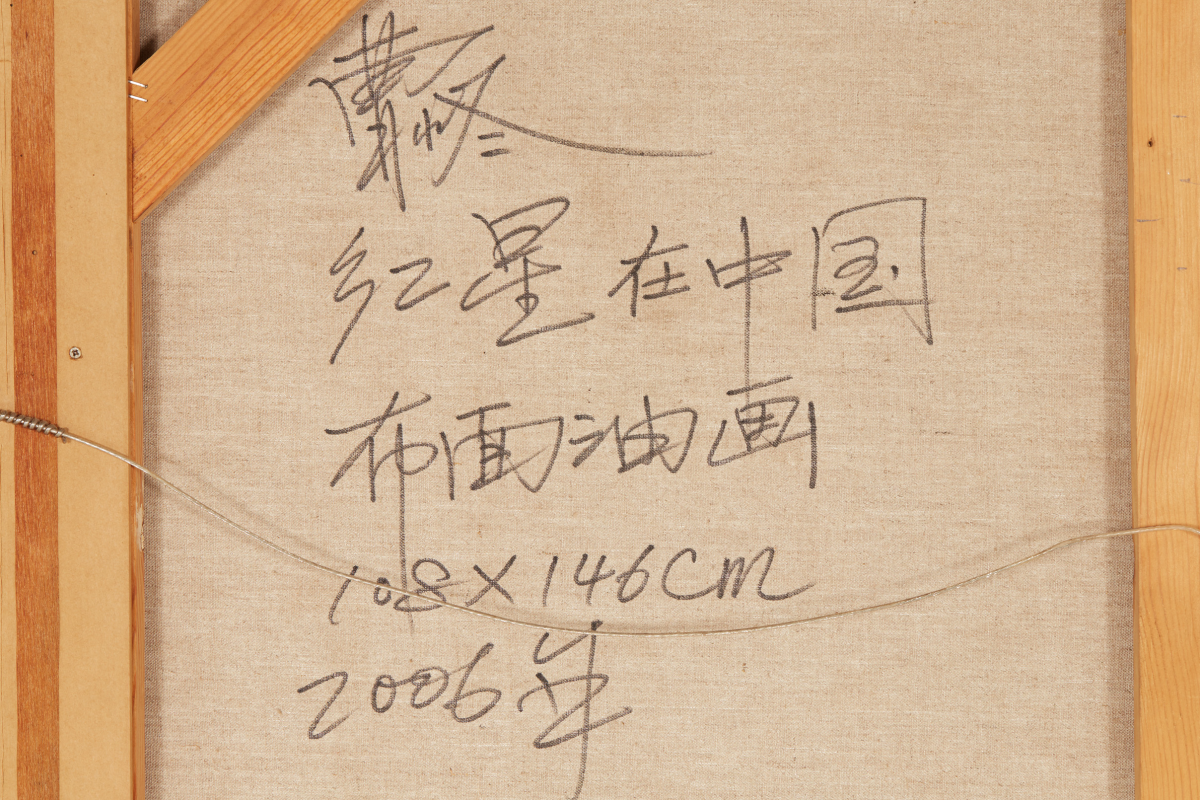 红星在中国
布面油画
108X146cm
2006年